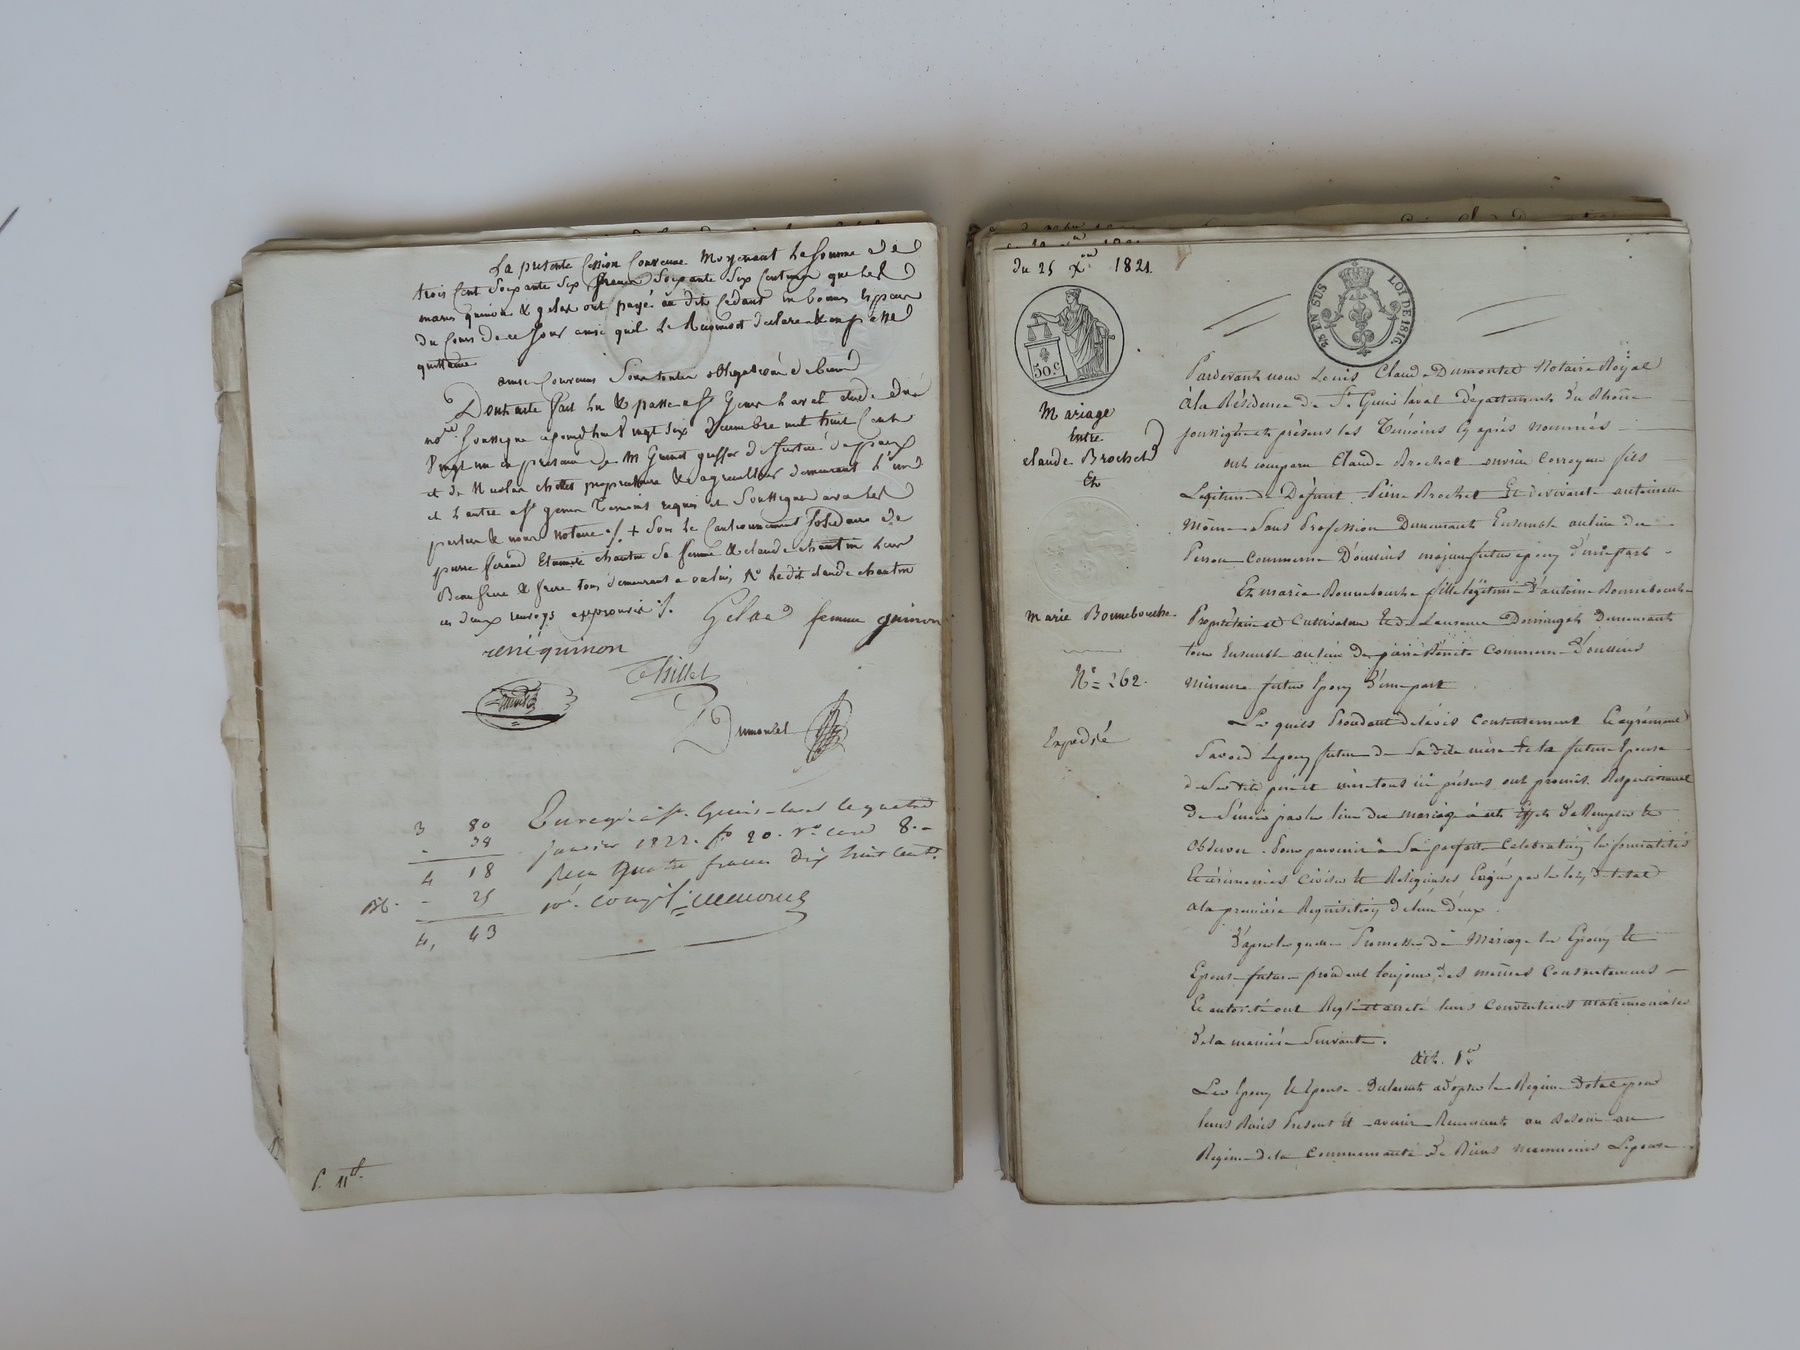 La presente Cession Convenue Moyenant la somme de
trois Cent Soixante Six francs Soixante Six Centimes que les
maries quinon & gelas ont payé au dit Cedant en bonnes Espèces
du Cours de ce jour ainsi quil le Reconnoit declare & en passe
quittance
ainsi Convenus Sous toutes obligations de bien
Dont acte fait Lu & passé a St Genis Laval etude du
no.re Soussigné aujourdhui vingt six decembre mil huit Cent
Vingt un en presence de M Guinot greffier de Justice de paix
et de Nicolas chillet proprietaire & agriculteur demeurant l'un
et l'autre a St genis Temoins requis et Soussignés avec les
parties & nous notaire ./. + Sous le Cautionnement Solidaire de
pierre feraud Etiennette chautin Sa femme & claude chautin leur
Beau frere & frere tous demeurant a oulins
ces deux renvoys approuvés ./.
Gelas femme quinon
réné quinon
Chillet
Dumontet
3 80
- 38
4 18
- 25
4, 43
Enregistré à St. Genis-laval le quatre
janvier 1822. fo 20. Vo case 8.-
Reçu quatre francs dix huit cent.
du 25 Xbre 1821.
50.C
25 EN SUS
LOI DE 1816.
Mariage
Entre
claude Brochet
Et
Marie Bonnebouche.
No = 262.
Expédié
Pardevant nous Louis Claude Dumontet Notaire Royal
à la Résidence de St. Genis laval département du Rhône
soussigné et présens les Témoins cy après nommés
ont comparu Claude Brochet ouvrier Corroyeur fils
Légitime de Défunt Pierre Brochet Et de vivante antoinette
Moine Sans Profession Demeurants Ensemble au lieu du
Perron Commune D'oullins majeur futur époux d'une part
Et marie Bonnebouche fille légitime d'antoine Bonnebouche
Propriétaire et Cultivateur Et de Laurence Dominget Demeurants
tous Ensemble au lieu de pierre Bénite Commune D'oullins
mineure future Epouse d'autre part
Les quels Procédant de l'avis Consentement Et agrément
Savoir L'epoux futur de Sa dite mère Et la future Epouse
de Ses dits père et mère tous ici présens ont promis Respectivement
De S'unir par les liens du mariage à cet Effet De Remplir Et
Observer Pour parvenir à Sa parfaite Célébration les formalités
Et cérémonies Civiles Et Religieuses Exigées par les loix de l'état
a la première Requisition de l'un d'eux.
D'après les quelles Promesses de Mariage les Epoux Et
Epouse futurs procédant toujours des mêmes Consentemens
Et autorité ont Réglé et arrêté leurs Conventions matrimoniales
De la manière Suivante.
Art. 1er
Les Epoux Et Epouse Déclarent adopter le Régime Dotal pour
leurs Biens Présent Et avenir Renonçants au Besoin au
Régime de la Communauté De Biens neanmoins L'epouse